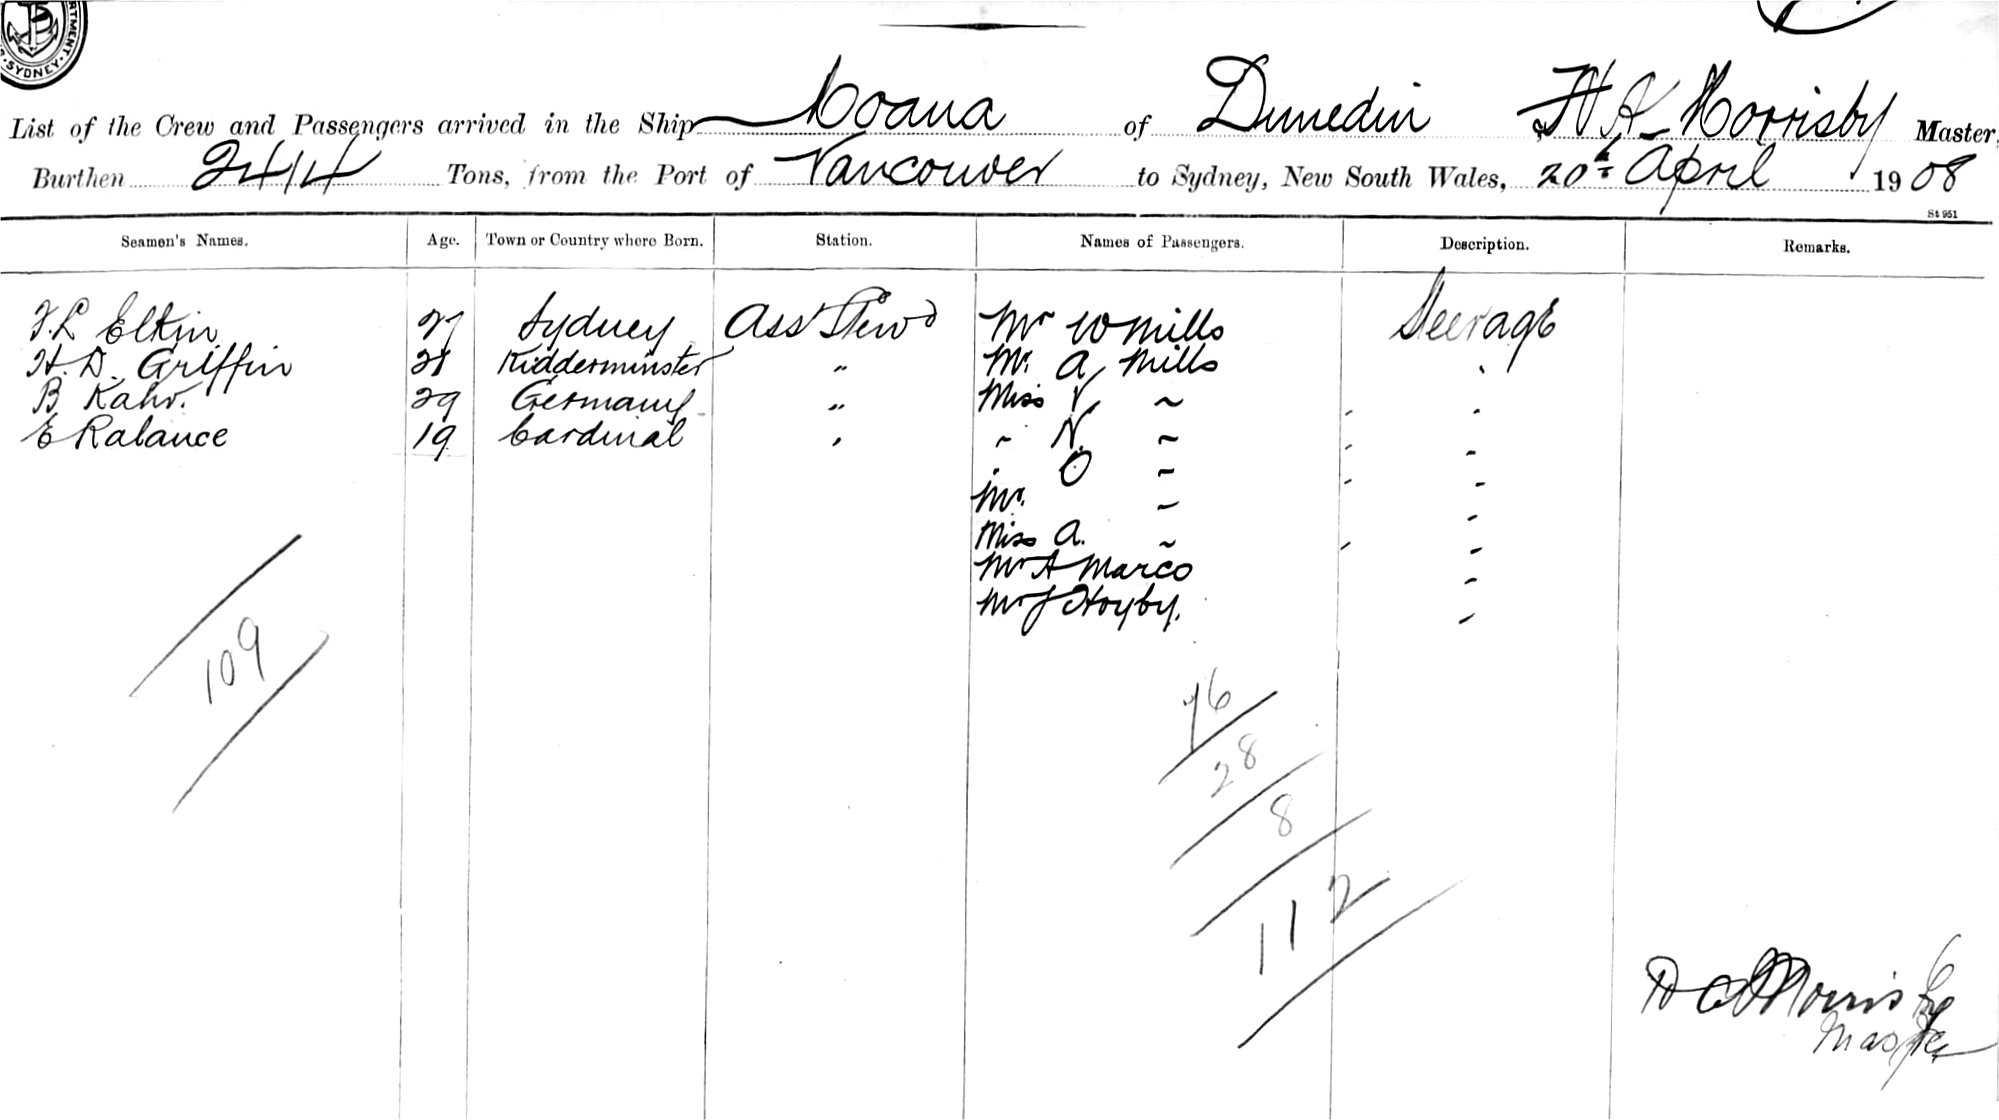 RTMENT. SYDNEY.
List of the Crew and Passengers arrived in the Ship Moana of Dunedin H A Morrisby Master,
Burthen 2414 Tons, from the Port of Vancouver to Sydney, New South Wales, 20th April 1908
St 951
Seamen's Names. Age. Town or Country where Born. Station. Names of Passengers. Description. Remarks.
F. L Elkin 27 Sydney Asst Stewd Mr W Mills Steerage
H. D. Griffin 28 Kidderminster " Mr. A Mills "
B Kahr. 29 Germany " Miss V ~ "
E Ralance 19 Cardinal " " N. ~ "
" O ~ "
Mr. ~ "
Miss A. ~ "
Mr A Marco "
Mr J Hoyby. "
109
76
28
8
112
H A Morrisby
Master